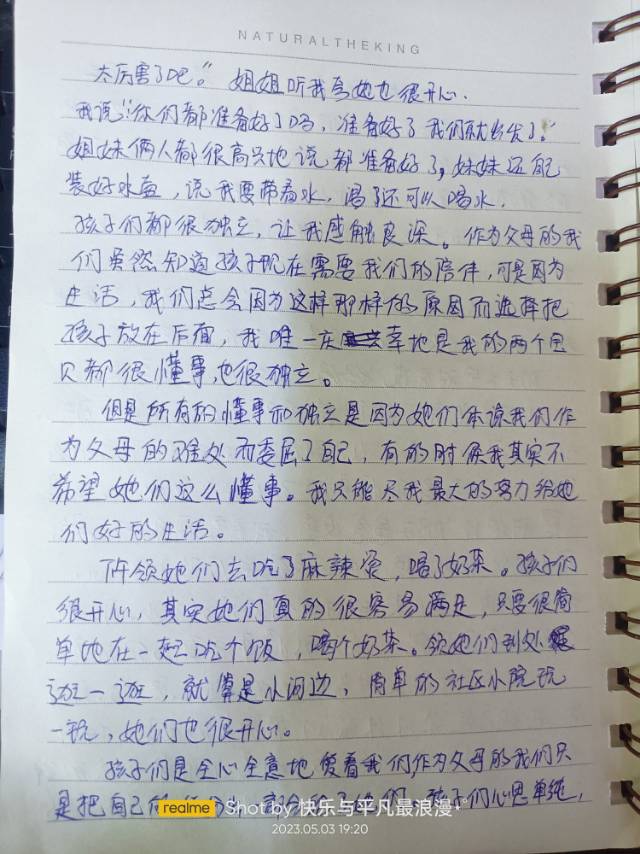 NATURALTHEKING
太厉害了吧。”姐姐听我夸她也很开心.
我说:“你们都准备好了吗，准备好了我们就出发了。”
姐妹俩人都很高兴地说都准备好了,妹妹还能
装好水壶，说我要带着水，渴了还可以喝水.
孩子们都很独立，让我感触良深。作为父母的我
们虽然知道孩子现在需要我们的陪伴，可是因为
生活，我们总会因为这样那样的原因而选择把
孩子放在后面，我唯一庆幸地是我的两个宝
贝都很懂事,也很独立。
但是所有的懂事和独立是因为她们体谅我们作
为父母的难处而委屈了自己，有的时候我其实不
希望她们这么懂事。我只能尽我最大的努力给她
们好的生活。
午领她们去吃了麻辣烫，喝了奶茶。孩子们
很开心，其实她们真的很容易满足，只要很简
单地在一起吃个饭，喝个奶茶。领她们到处
逛一逛，就算是小河边、简单的社区小院玩
一玩，她们也很开心。
孩子们是全心全意地爱着我们,作为父母的我们只
是把自己的 部分给了她们,孩子们心思单纯,
realme Shot by 快乐与平凡最浪漫
2023.05.03 19:20